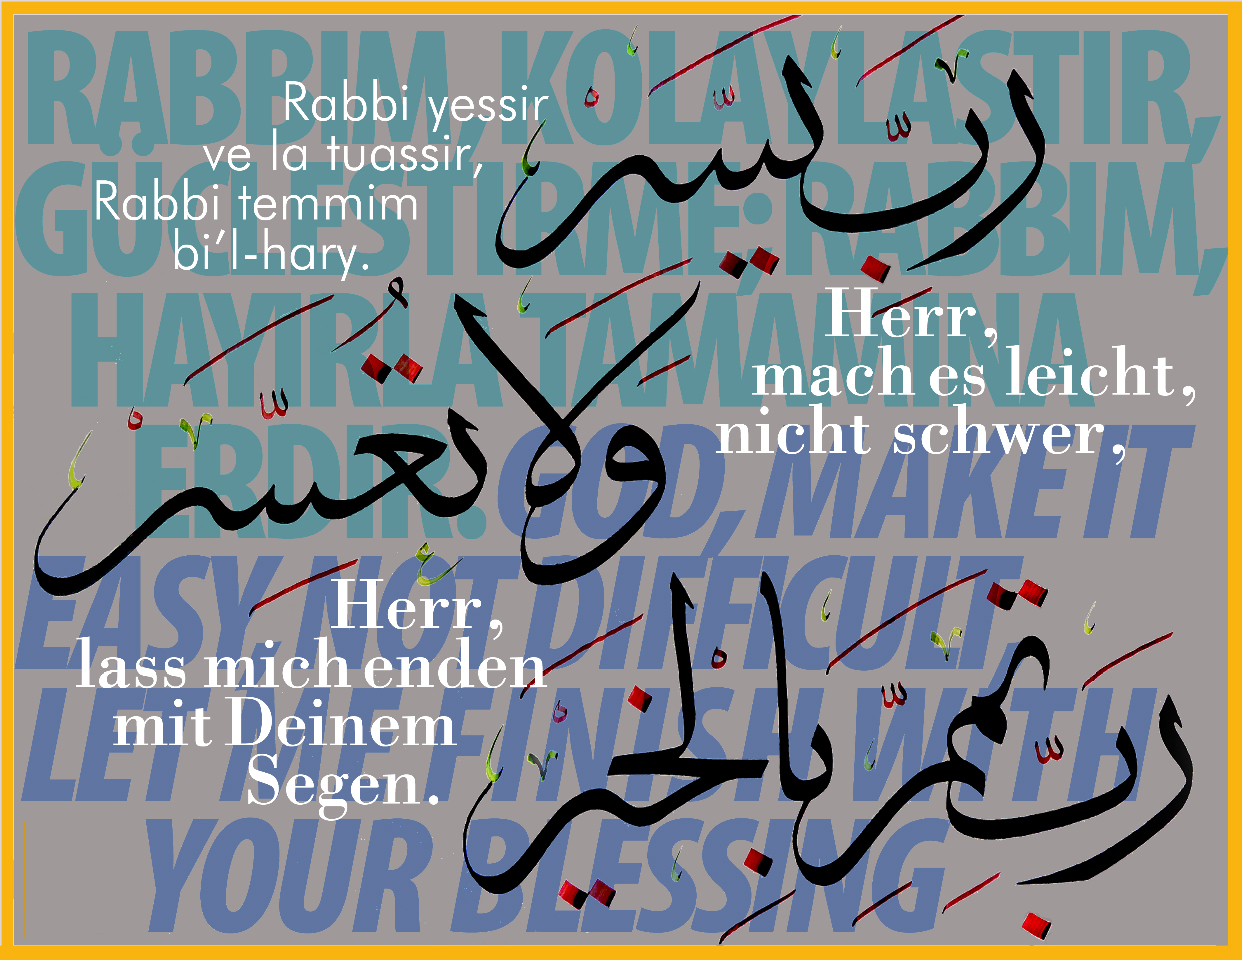 RABBIM, KOLAYLASTIR,
GÜCLESTIRME; RABBIM,
HAYIRLA TAMAMINA
ERDIR. GOD, MAKE IT
EASY, NOT DIFFICULT,
LET ME FINISH WITH
YOUR BLESSING
Rabbi yessir
ve la tuassir,
Rabbi temmim
bi’l-hary.
رَبِّ يَسِّرْ
وَلَا تُعَسِّرْ
Herr,
mach es leicht,
nicht schwer,
Herr,
lass mich enden
mit Deinem
Segen.
رَبِّ تَمِّمْ بِالْخَيْرِ